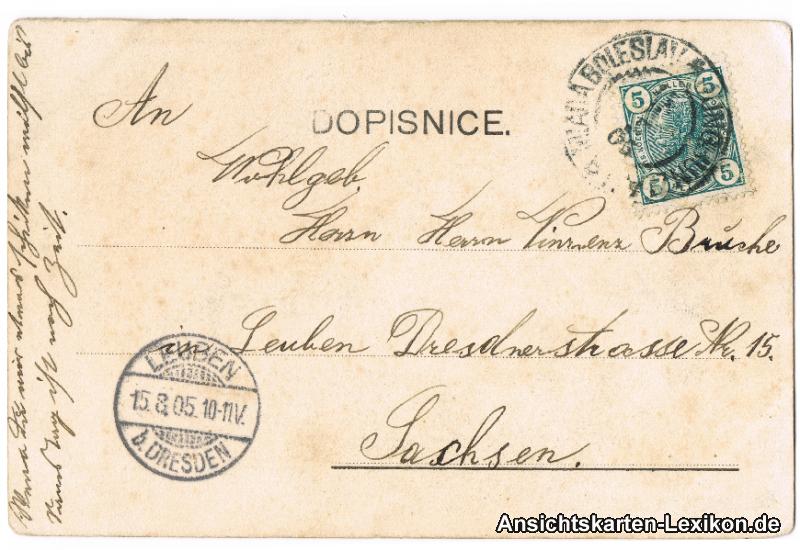 An
DOPISNICE.
MLADÁ BOLESLAV
5 5
5 5
Wohlgeb.
Herrn Herrn Vinzenz Brüche
in Leuben Dresdnerstrasse Nr. 15.
Sachsen.
LEUBEN
15.8.05.10-11V.
b. DRESDEN
Wenn Du mir etwas schicken willst
ist noch Zeit.
Ansichtskarten-Lexikon.de